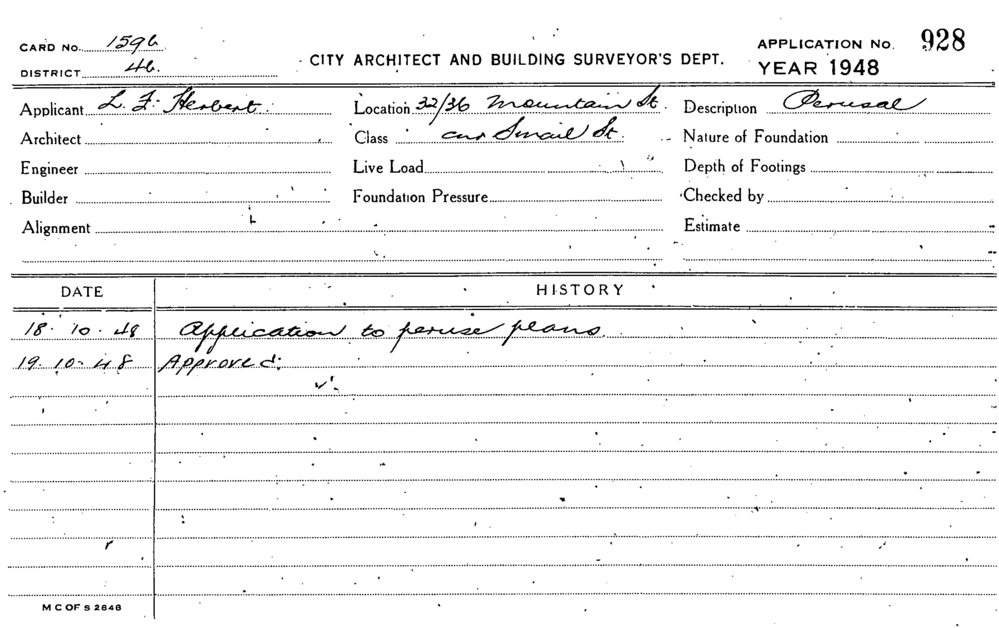 CARD No. 1596
DISTRICT 46.
CITY ARCHITECT AND BUILDING SURVEYOR'S DEPT.
APPLICATION No. 928
YEAR 1948
Applicant L. F. Herbert.
Location 32/36 Mountain St.
Description Perusal
Architect
Class cnr Smail St.
Nature of Foundation
Engineer
Live Load
Depth of Footings
Builder
Foundation Pressure
Checked by
Alignment
Estimate
DATE HISTORY
18.10.48 Application to peruse plans.
19.10.48 Approved.
M C OF S 2648